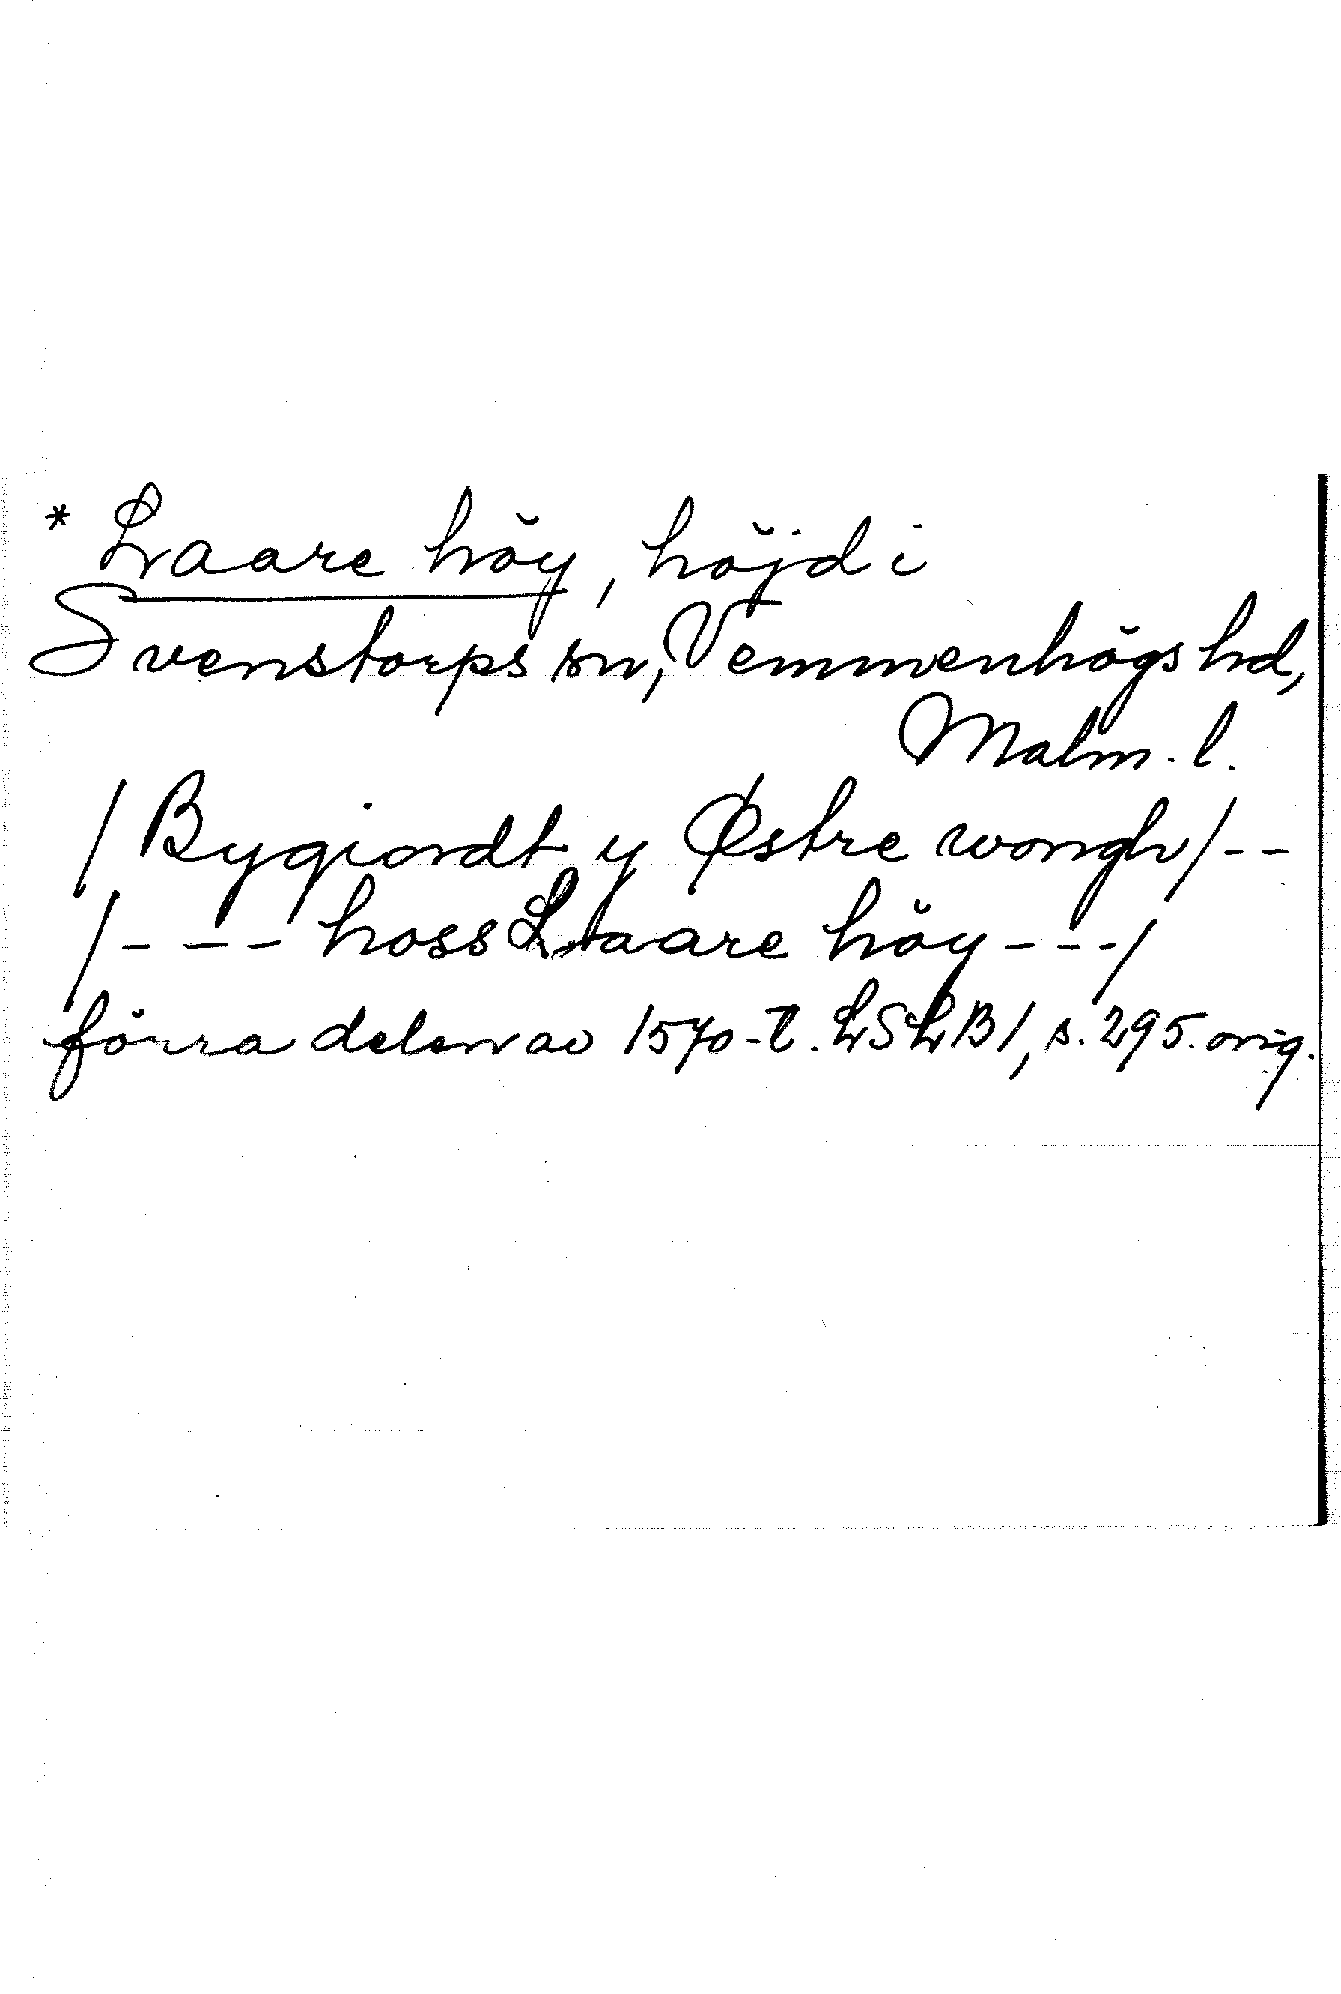 * Laare höy, höjd i
Svenstorps sn, Vemmenhögs hd,
Malm. l.
/Bygiordt y Østre wongh/--
/--- hoss Laare höy ---/
förra delen av 1570-t. LSLB1, s. 295. orig.